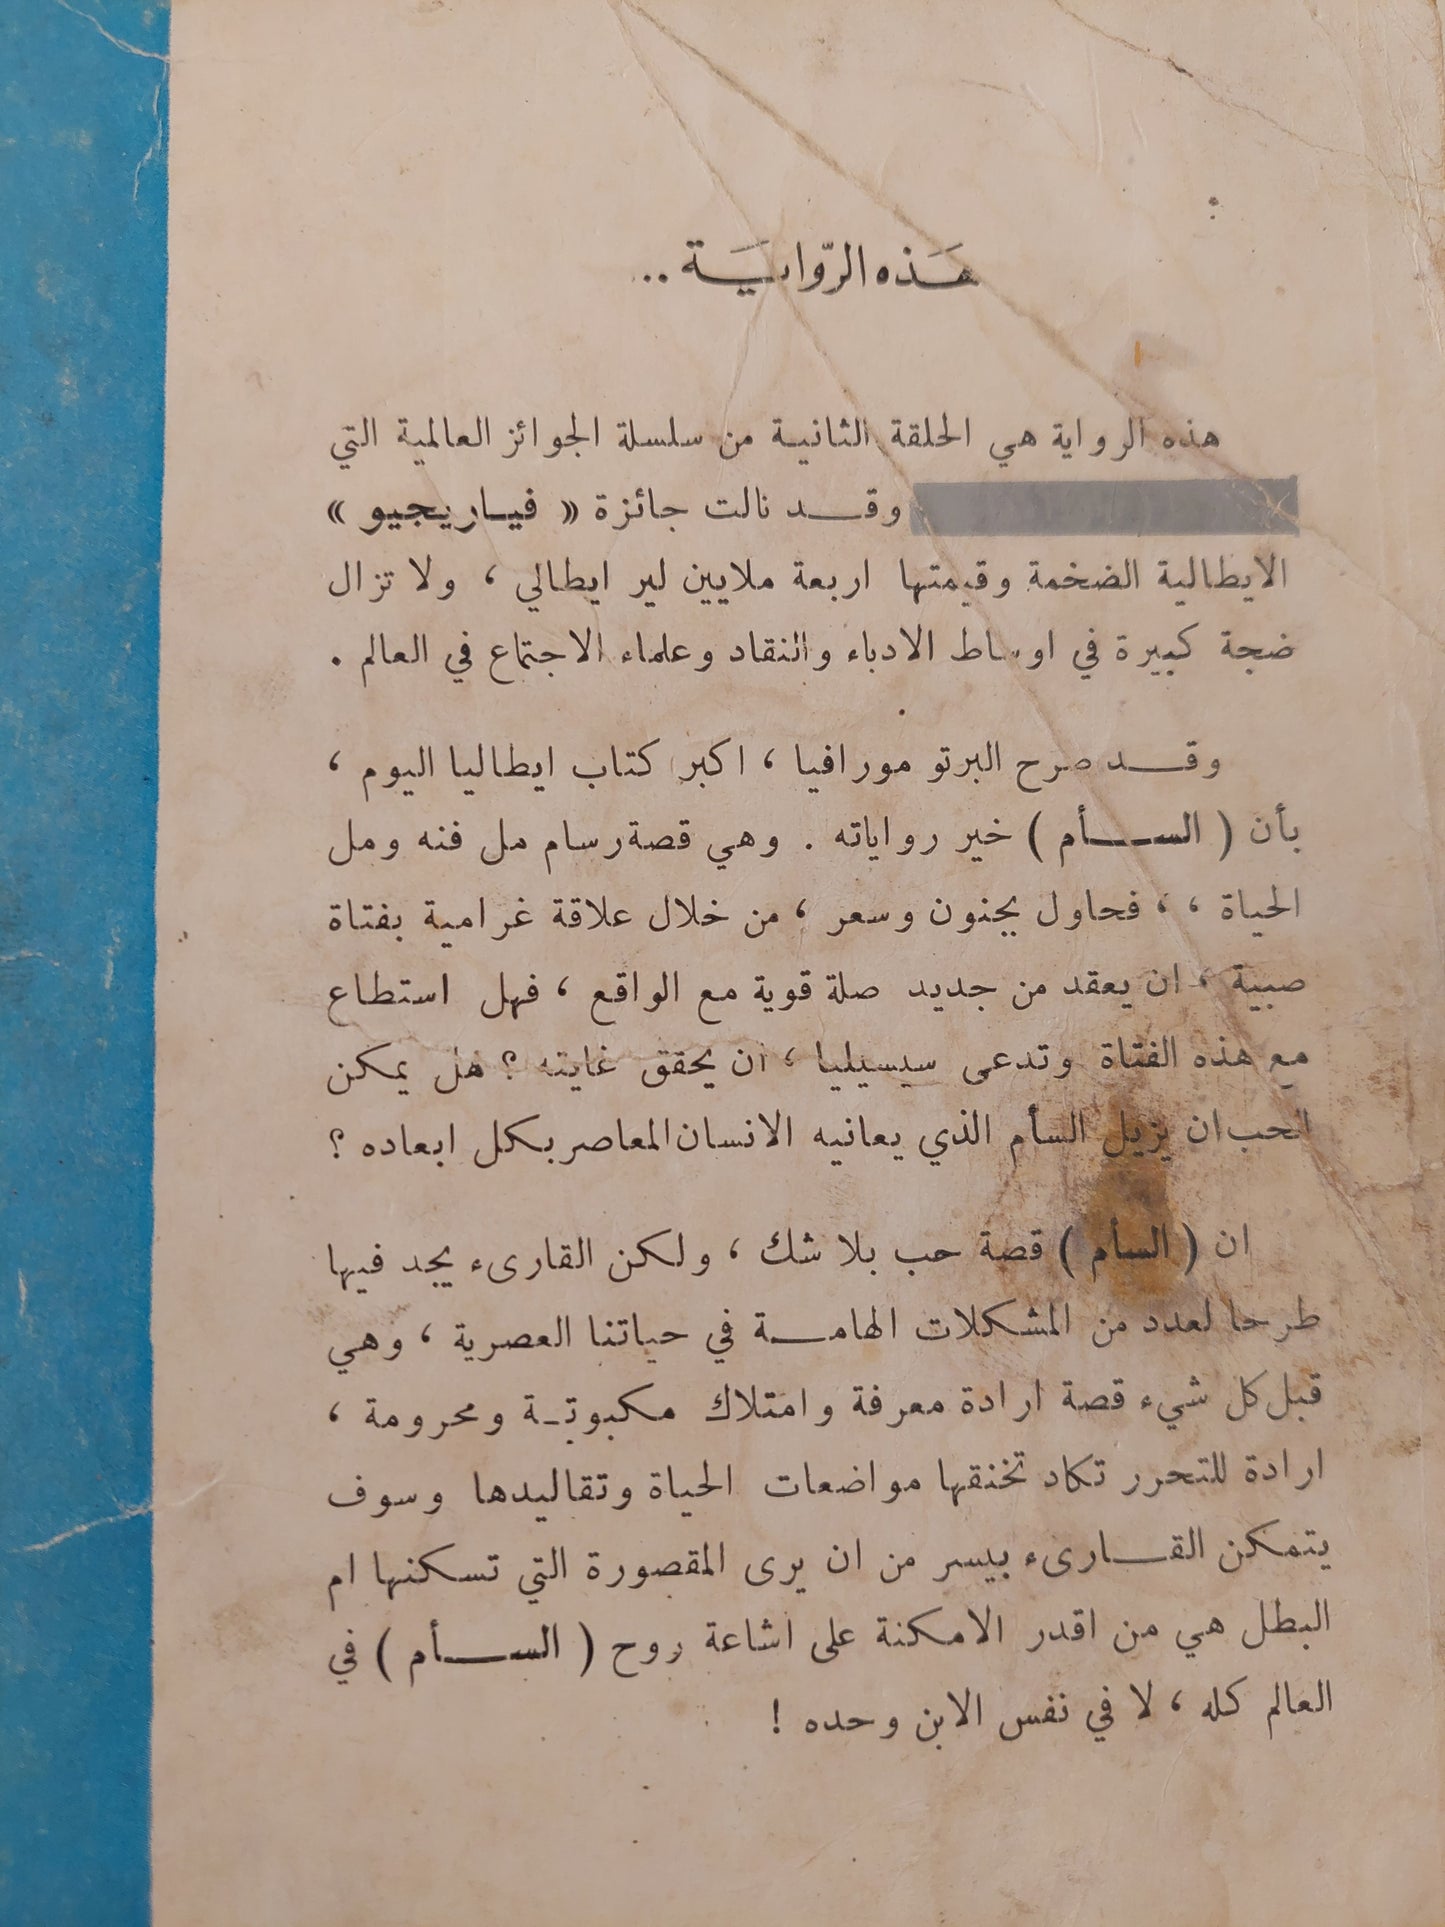 هَذه الرّوايَة ..
هذه الرواية هي الحلقة الثانية من سلسلة الجوائز العالمية التي
وقد نالت جائزة « فياريجيو »
الايطالية الضخمة وقيمتها اربعة ملايين لير ايطالي ، ولا تزال
ضجة كبيرة في اوساط الادباء والنقاد وعلماء الاجتماع في العالم .
وقد صرح البرتو مورافيا ، اكبر كتاب ايطاليا اليوم ،
بأن ( السأم ) خير رواياته . وهي قصة رسام مل فنه ومل
الحياة ، ، فحاول بجنون وسعر ، من خلال علاقة غرامية بفتاة
صبية ، ان يعقد من جديد صلة قوية مع الواقع ، فهل استطاع
مع هذه الفتاة وتدعى سيسيليا ، ان يحقق غايته ؟ هل يمكن
الحب ان يزيل السأم الذي يعانيه الانسان المعاصر بكل ابعاده ؟
ان ( السأم ) قصة حب بلا شك ، ولكن القارىء يجد فيها
طرحا لعدد من المشكلات الهامة في حياتنا العصرية ، وهي
قبل كل شيء قصة ارادة معرفة وامتلاك مكبوتة ومحرومة ،
ارادة للتحرر تكاد تخنقها مواضعات الحياة وتقاليدها وسوف
يتمكن القارىء بيسر من ان يرى المقصورة التي تسكنها ام
البطل هي من اقدر الامكنة على اشاعة روح ( السأم ) في
العالم كله ، لا في نفس الابن وحده !